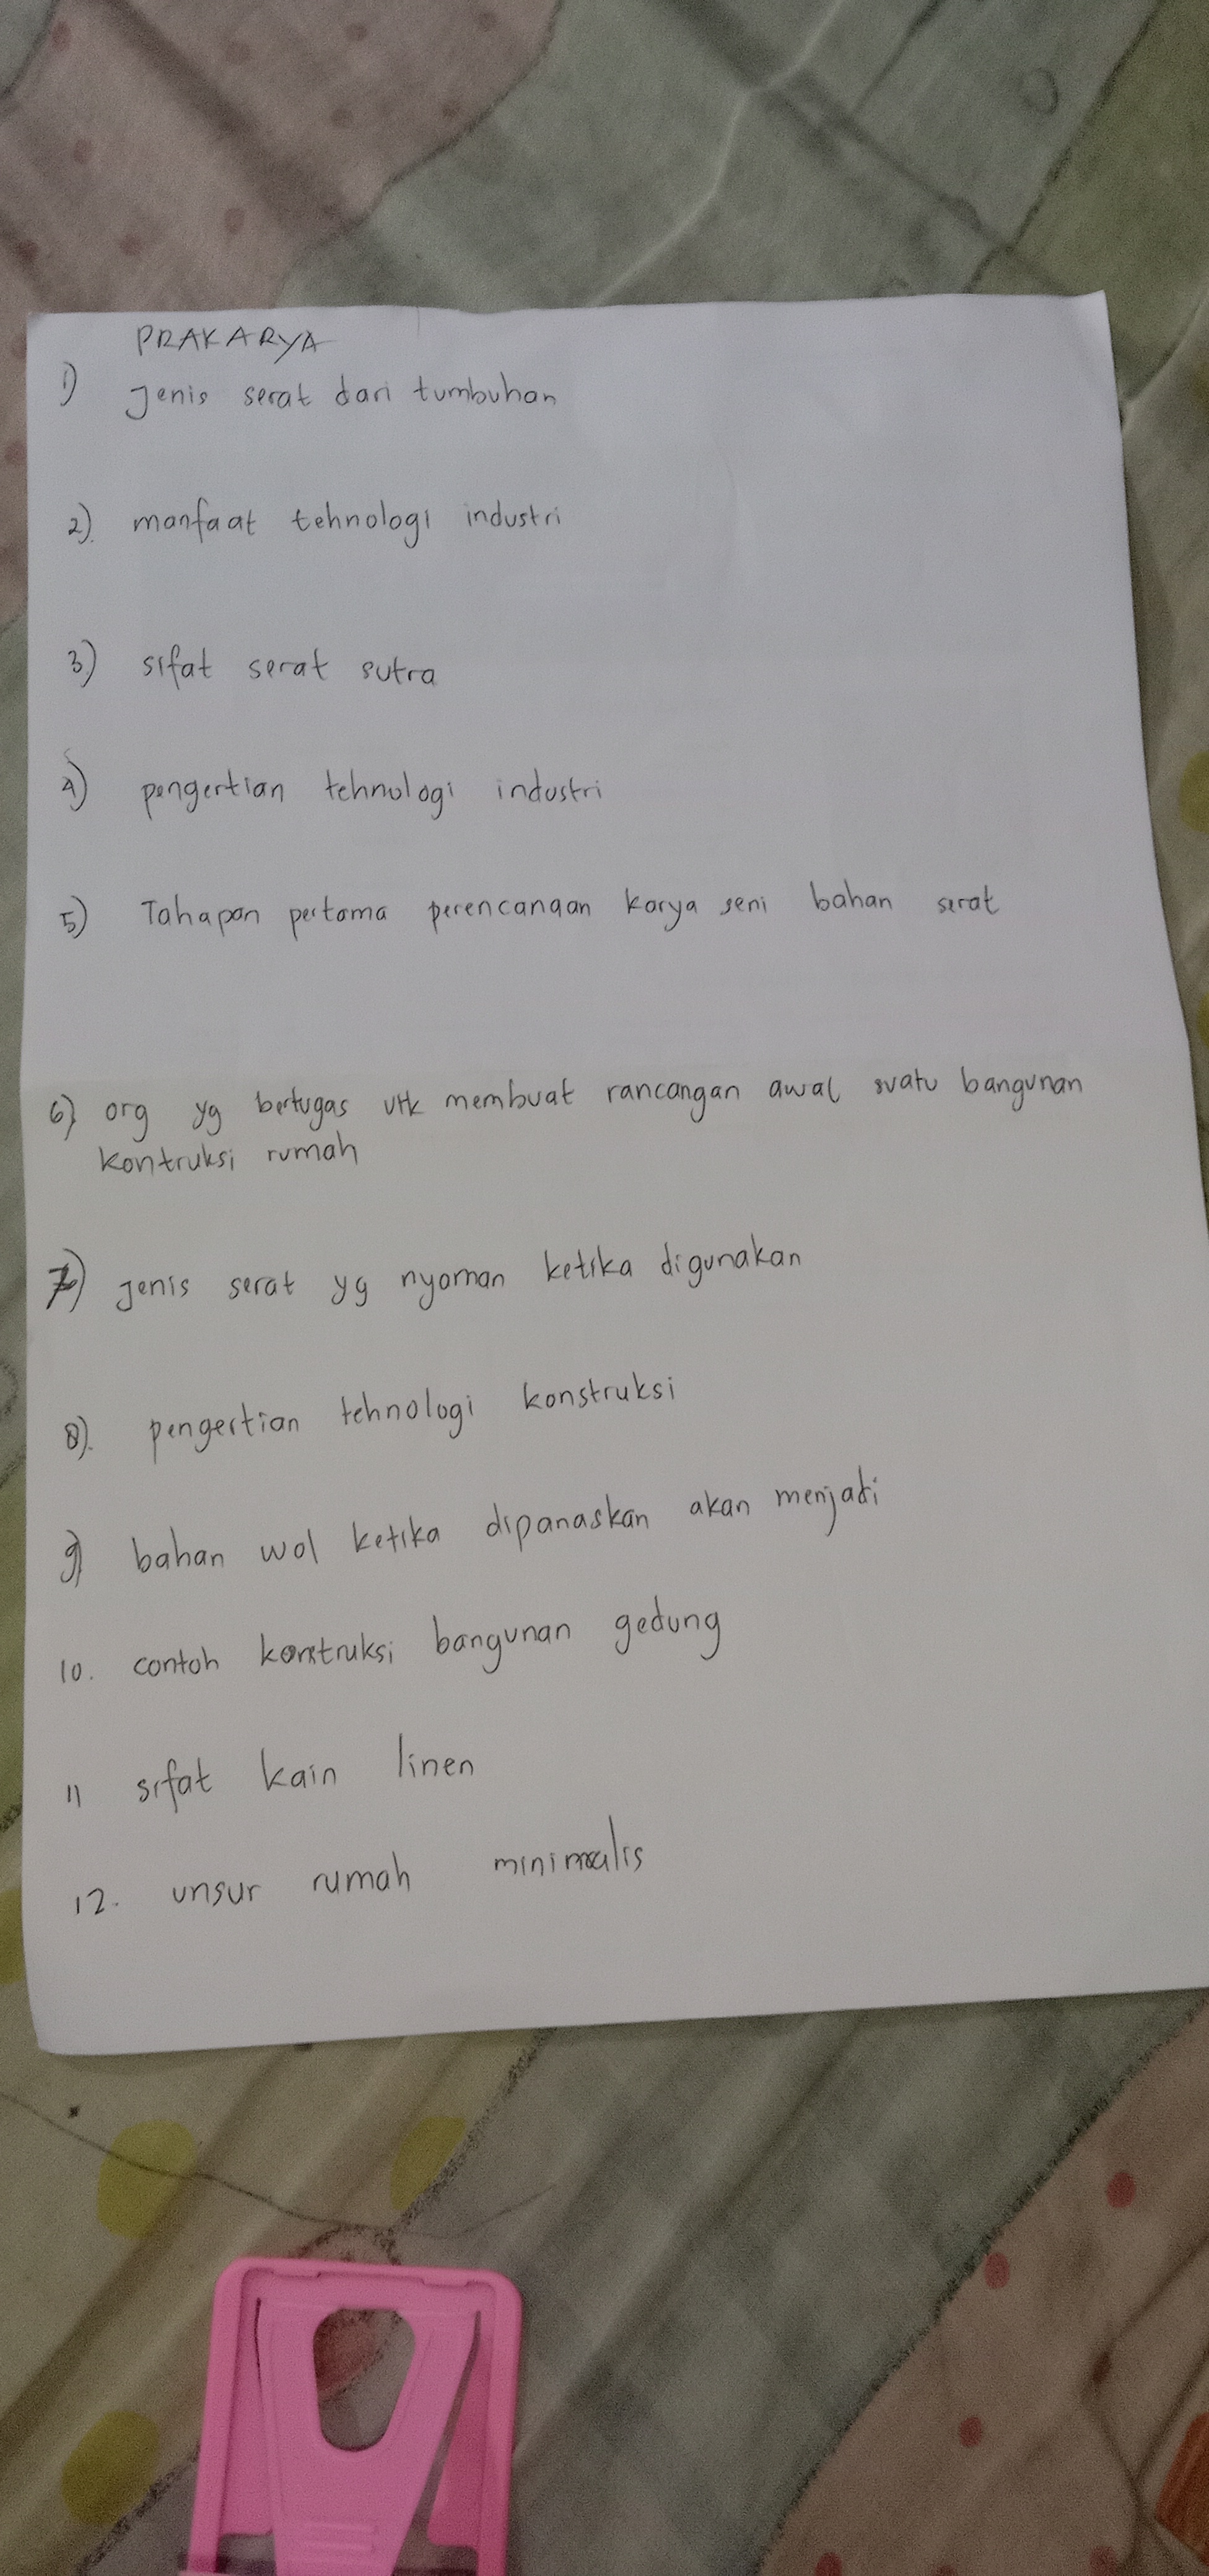 PRAKARYA
1) Jenis serat dari tumbuhan
2). manfaat tehnologi industri
3) sifat serat sutra
4) pengertian tehnologi industri
5) Tahapan pertama perencangan karya seni bahan serat
6) org yg bertugas utk membuat rancangan awal suatu bangunan
kontruksi rumah
7) jenis serat yg nyaman ketika digunakan
8). pengertian tehnologi konstruksi
9) bahan wol ketika dipanaskan akan menjadi
10. contoh kontruksi bangunan gedung
11 sifat kain linen
12. unsur rumah minimalis